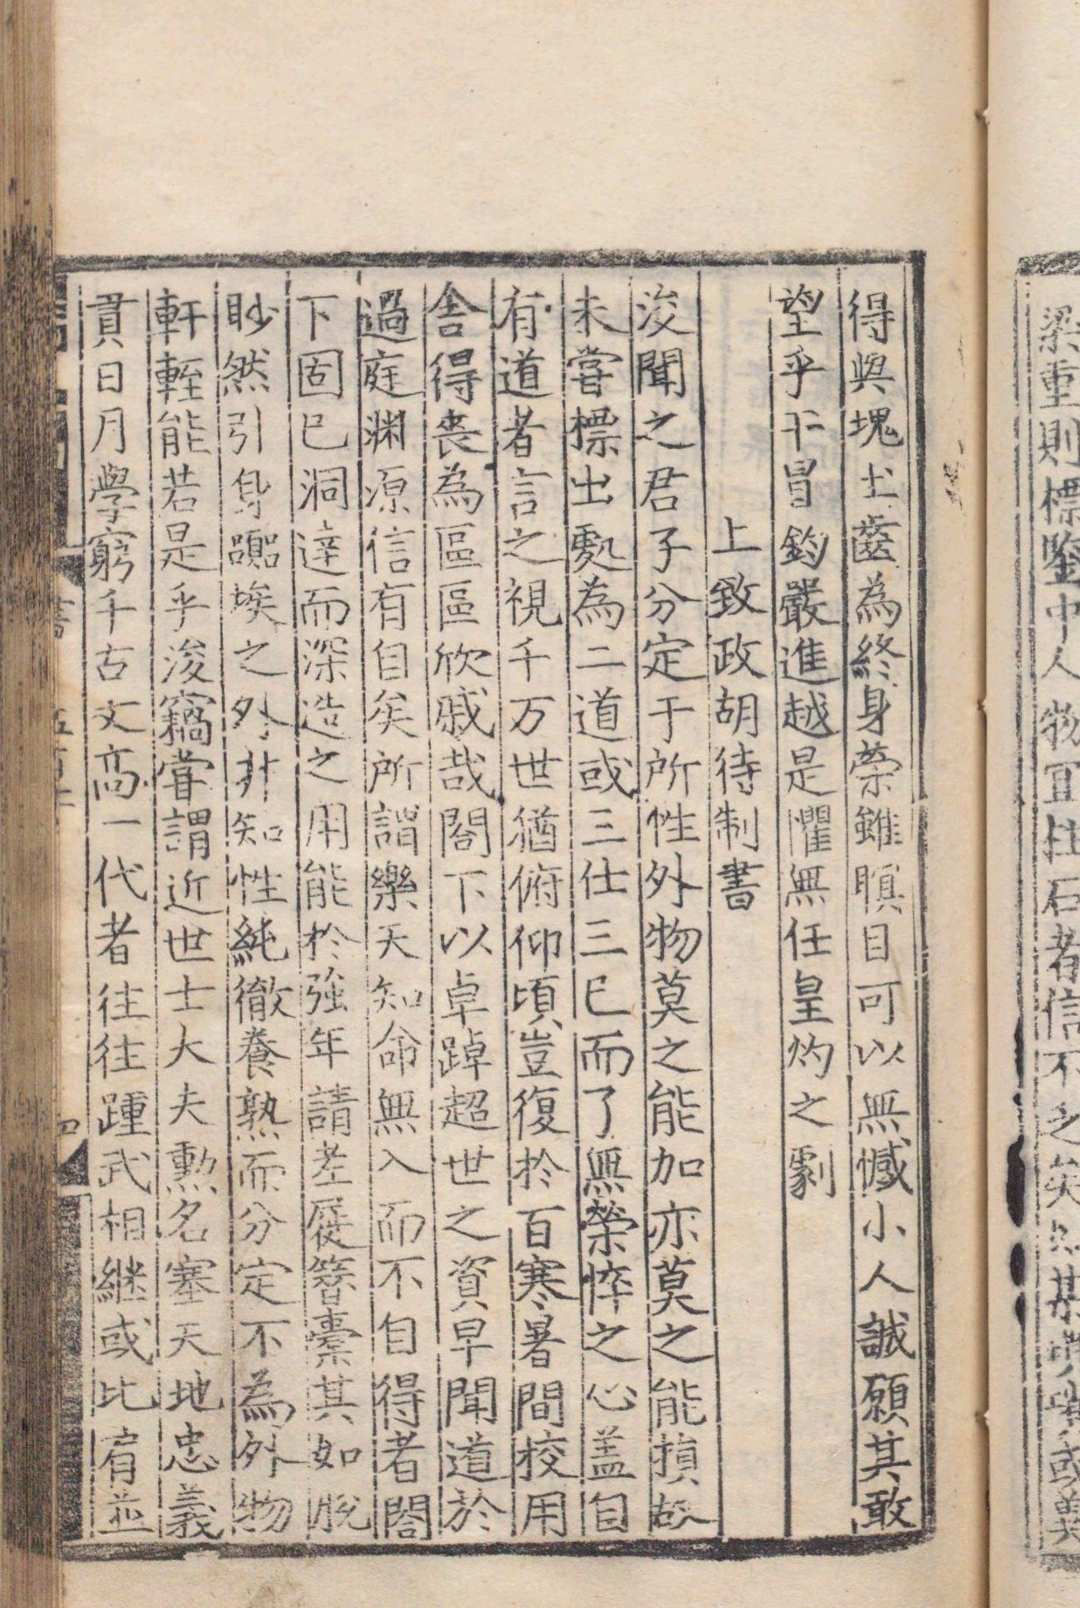 梁重則標鑒中人物宜柱石者信不乏矣
得與塊土齒為終身榮雖瞑目可以無憾小人誠願其敢
望乎干冒鈞嚴進越是懼無任皇灼之劇
上致政胡待制書
浚聞之君子分定于所性外物莫之能加亦莫之能損故
未嘗標出處為二道或三仕三已而了無榮悴之心蓋自
有道者言之視千万世猶俯仰頃豈復於百寒暑間校用
舍得喪為區區欣戚哉閤下以卓踔超世之資早聞道於
過庭淵源信有自矣所謂樂天知命無入而不自得者閤
下固已洞達而深造之用能於強年請老屣簪橐其如脫
眇然引身囂埃之外非知性純徹養熟而分定不為外物
軒輊能若是乎浚竊嘗謂近世士大夫勳名塞天地忠義
貫日月學窮千古文高一代者往往踵武相繼或比肩並
書
四